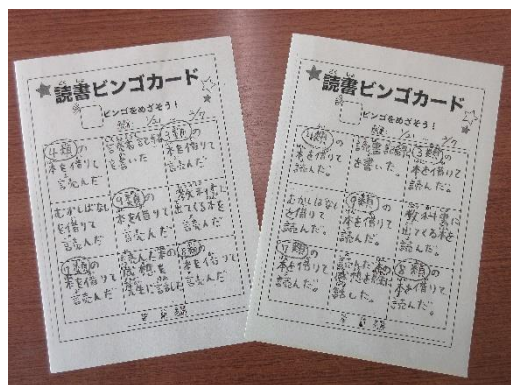 読書ビンゴカード
ビンゴをめざそう！
4類の
本を借りて
読んだ
読書記録
を書いた
3類の
本を借りて
読んだ。
むかしばなし
を借りて
読んだ
9類の
本を借りて
読んだ
教科書に
出てくる本を
読んだ。
本を借りて
読んだ
読んだ本の
感想を
先生に話した
本を借りて
読んだ
読書ビンゴカード
ビンゴをめざそう！
4類の
本を借りて
読んだ。
読書記録
を書いた。
3類の
本を借りて
読んだ。
むかしばなし
を借りて
読んだ
9類の
本を借りて
読んだ。
教科書に
出てくる本を
読んだ。
本を借りて
読んだ。
話した。
8類の
本を借りて
読んだ。